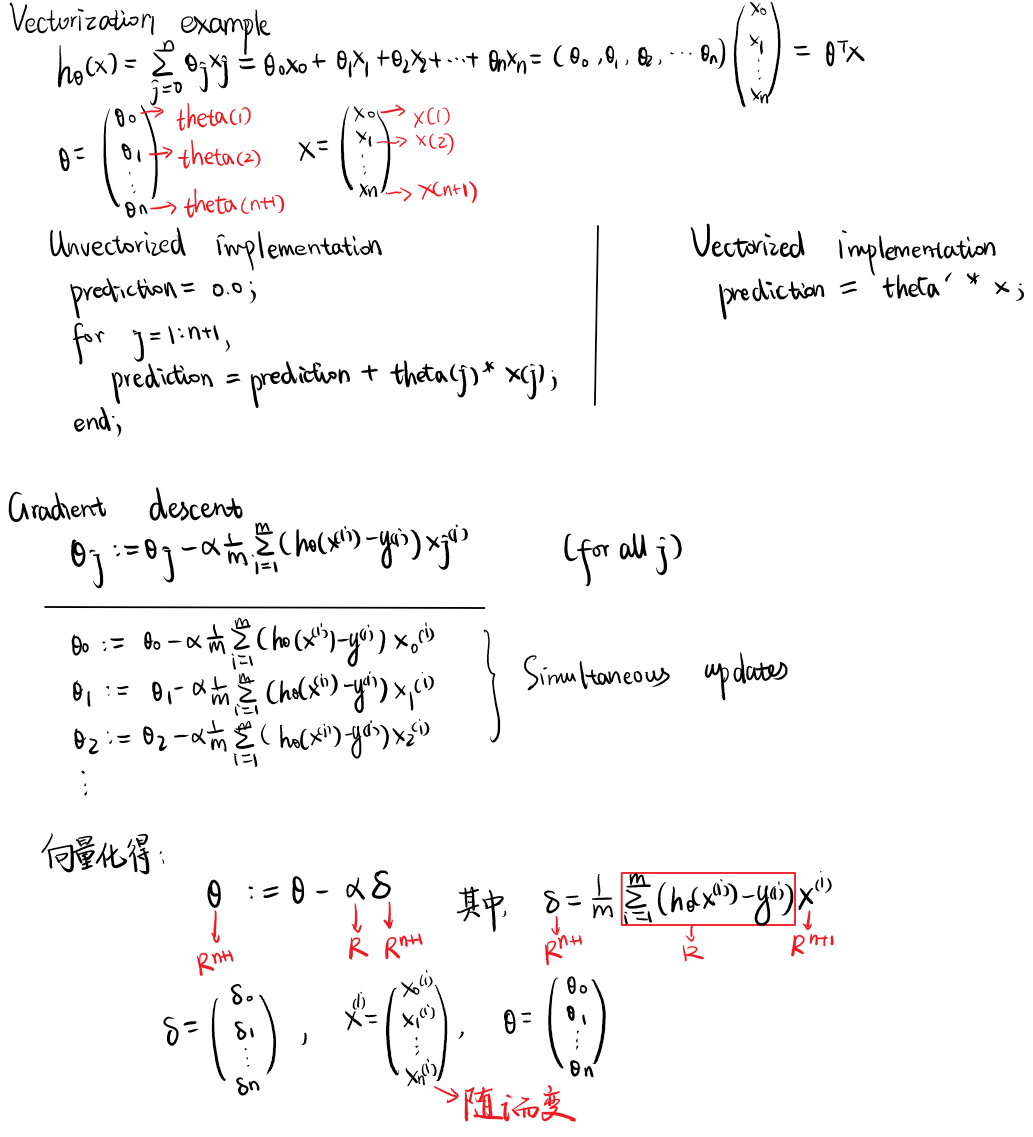 Vectorization example
hθ(x) = ∑_{j=0}^{n} θjxj = θ0x0 + θ1x1 + θ2x2 + ⋯ + θnxn = (θ0, θ1, θ2, ⋯ θn) (x0 x1 ⋮ xn) = θᵀx
θ = (θ0 θ1 ⋮ θn) → theta(1) → theta(2) → theta(n+1) x = (x0 x1 ⋮ xn) → x(1) → x(2) → x(n+1)
Unvectorized implementation
prediction = 0.0;
for j=1:n+1,
prediction = prediction + theta(j) * x(j);
end;
Vectorized implementation
prediction = theta' * x;
Gradient descent
θj := θj - α 1/m ∑_{i=1}^{m} (hθ(x^(i)) - y^(i)) xj^(i) (for all j)
θ0 := θ0 - α 1/m ∑_{i=1}^{m} (hθ(x^(i)) - y^(i)) x0^(i)
θ1 := θ1 - α 1/m ∑_{i=1}^{m} (hθ(x^(i)) - y^(i)) x1^(i)
θ2 := θ2 - α 1/m ∑_{i=1}^{m} (hθ(x^(i)) - y^(i)) x2^(i)
⋮
Simultaneous updates
向量化得:
θ := θ - αδ 其中, δ = 1/m ∑_{i=1}^{m} (hθ(x^(i)) - y^(i)) x^(i)
R^{n+1} R R^{n+1} R^{n+1} R R^{n+1}
δ = (δ0 δ1 ⋮ δn), x^(i) = (x0^(i) x1^(i) ⋮ xn^(i)), θ = (θ0 θ1 ⋮ θn)
→ 随i而变